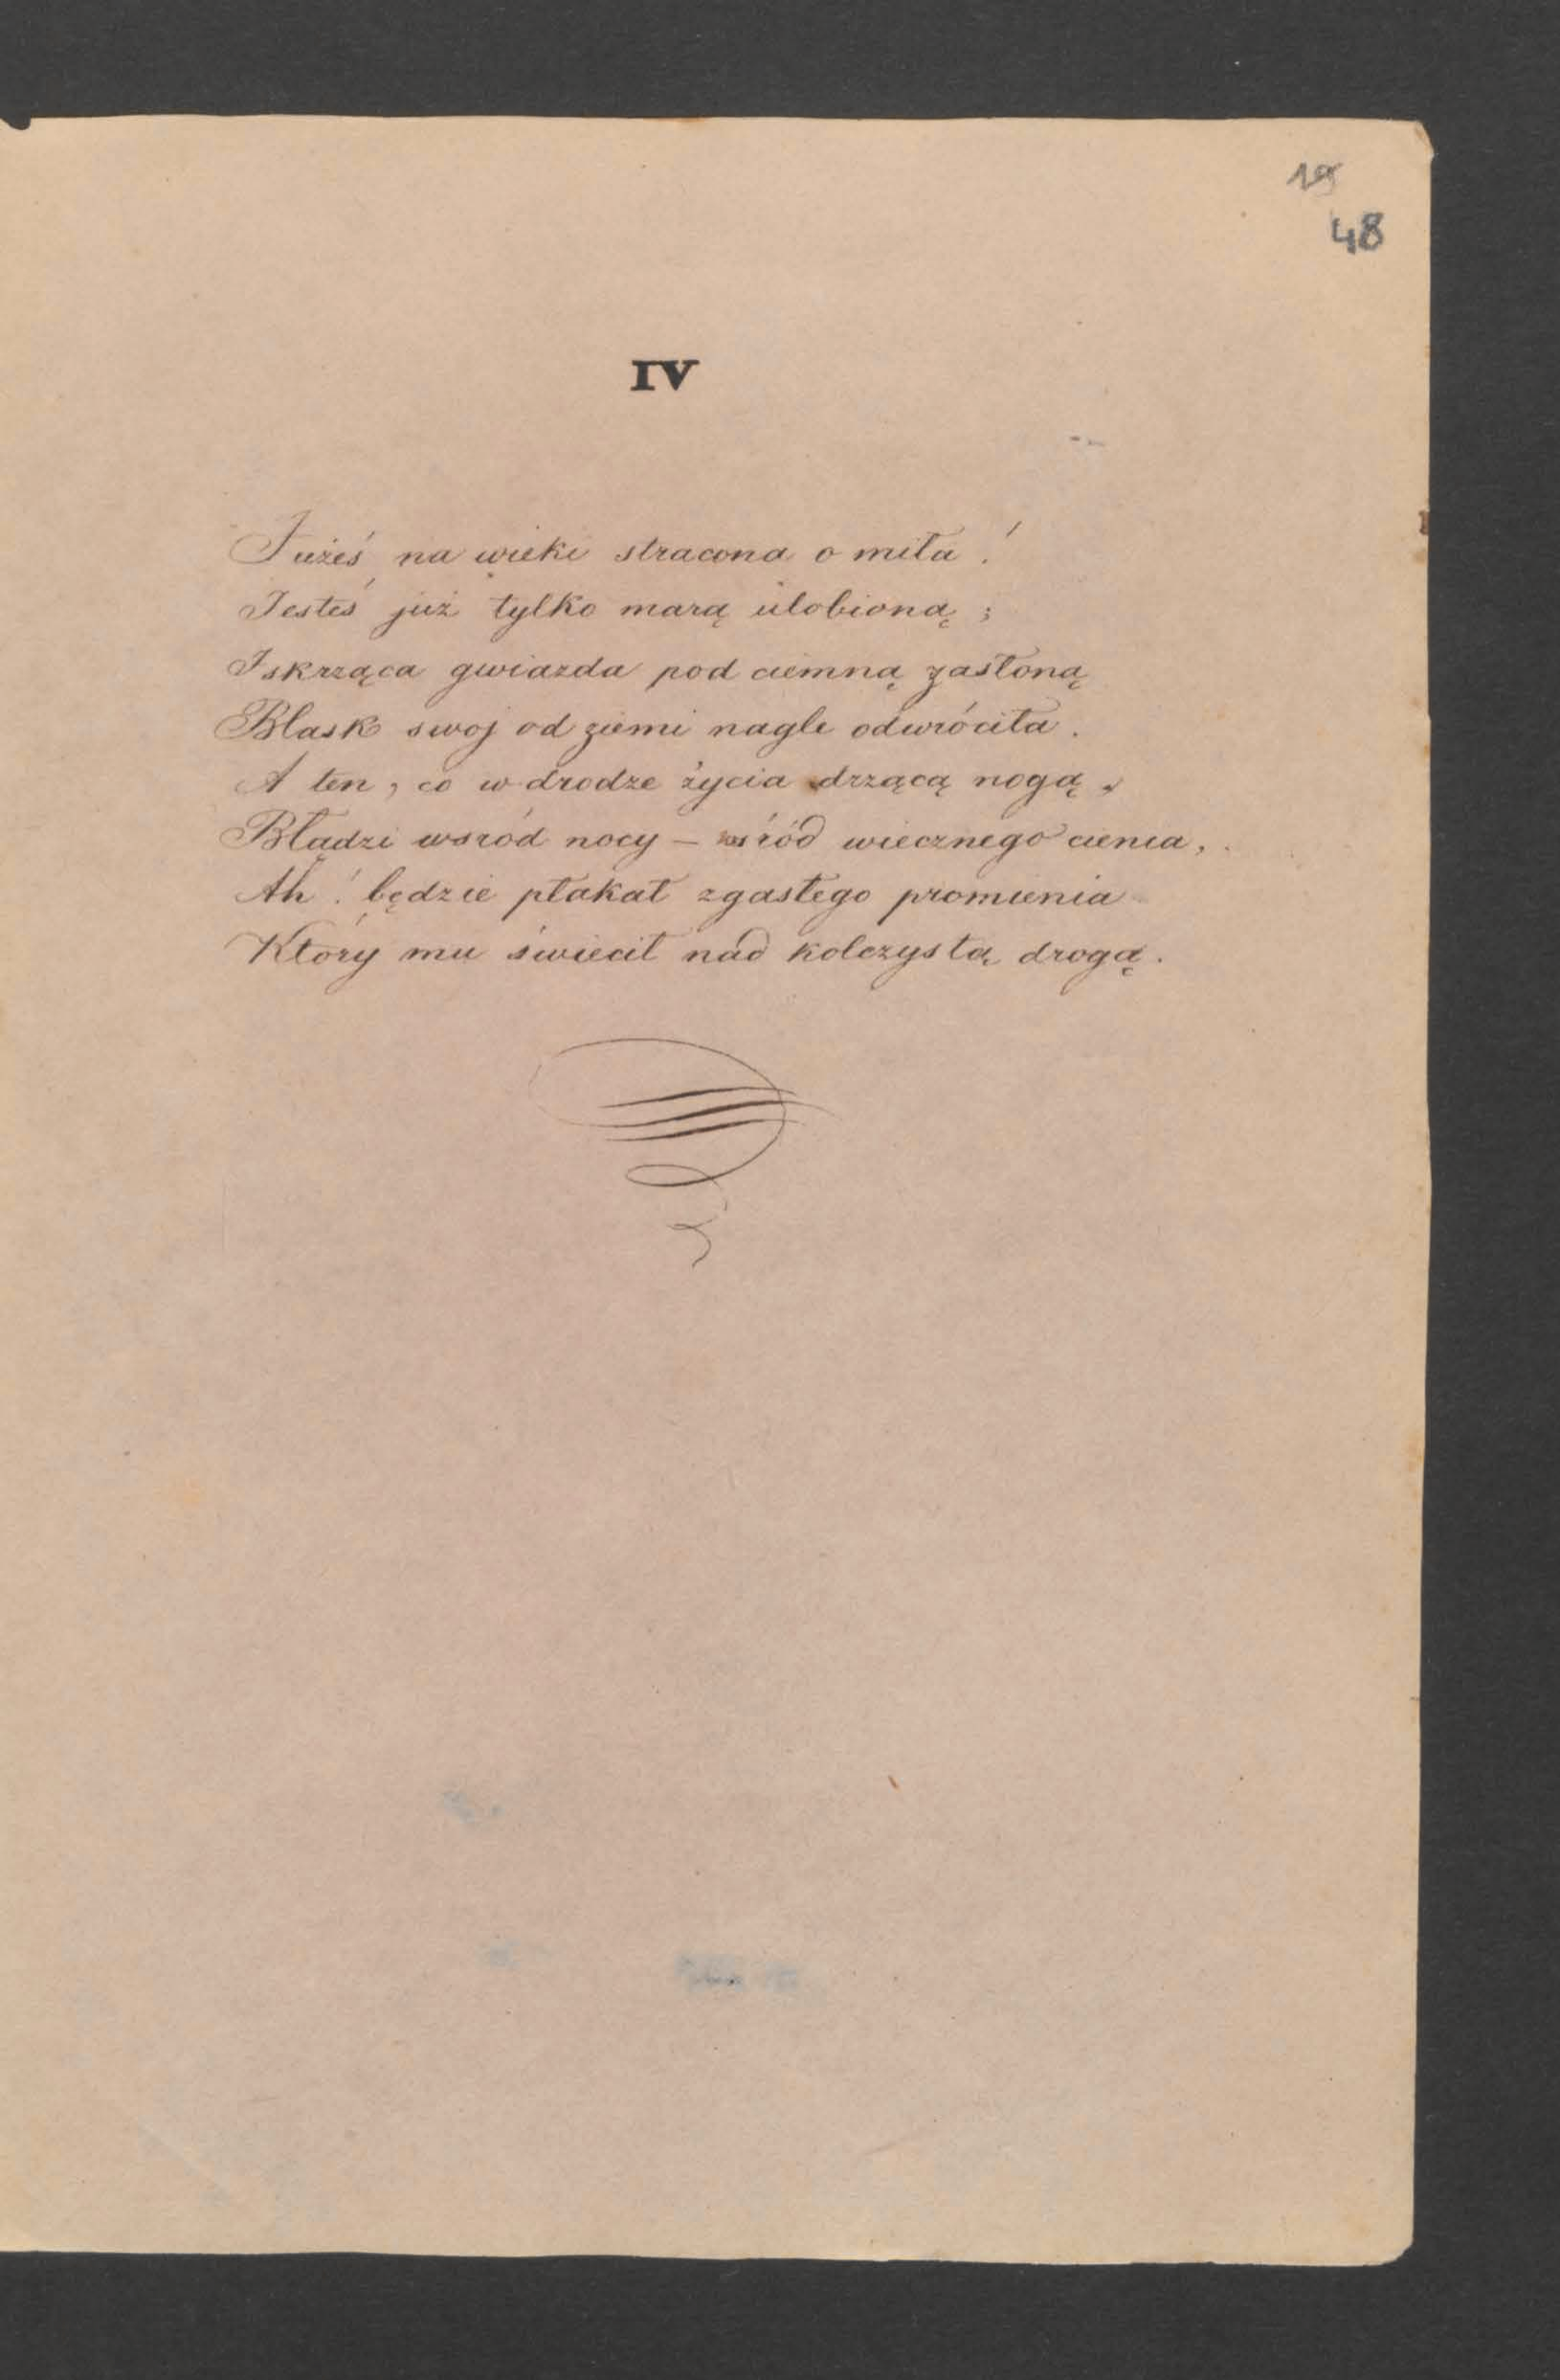 19
48
IV
Jużeś na wieki stracona o miła!
Jesteś już tylko marą ulobioną;
Iskrząca gwiazda pod ciemną zasłoną
Blask swoj od ziemi nagle odwróciła.
A ten, co w drodze życia drzącą nogą,
Błądzi wsród nocy – wśród wiecznego cienia,
Ah! będzie płakał zgasłego promienia
Który mu świecił nad kolczystą drogą.